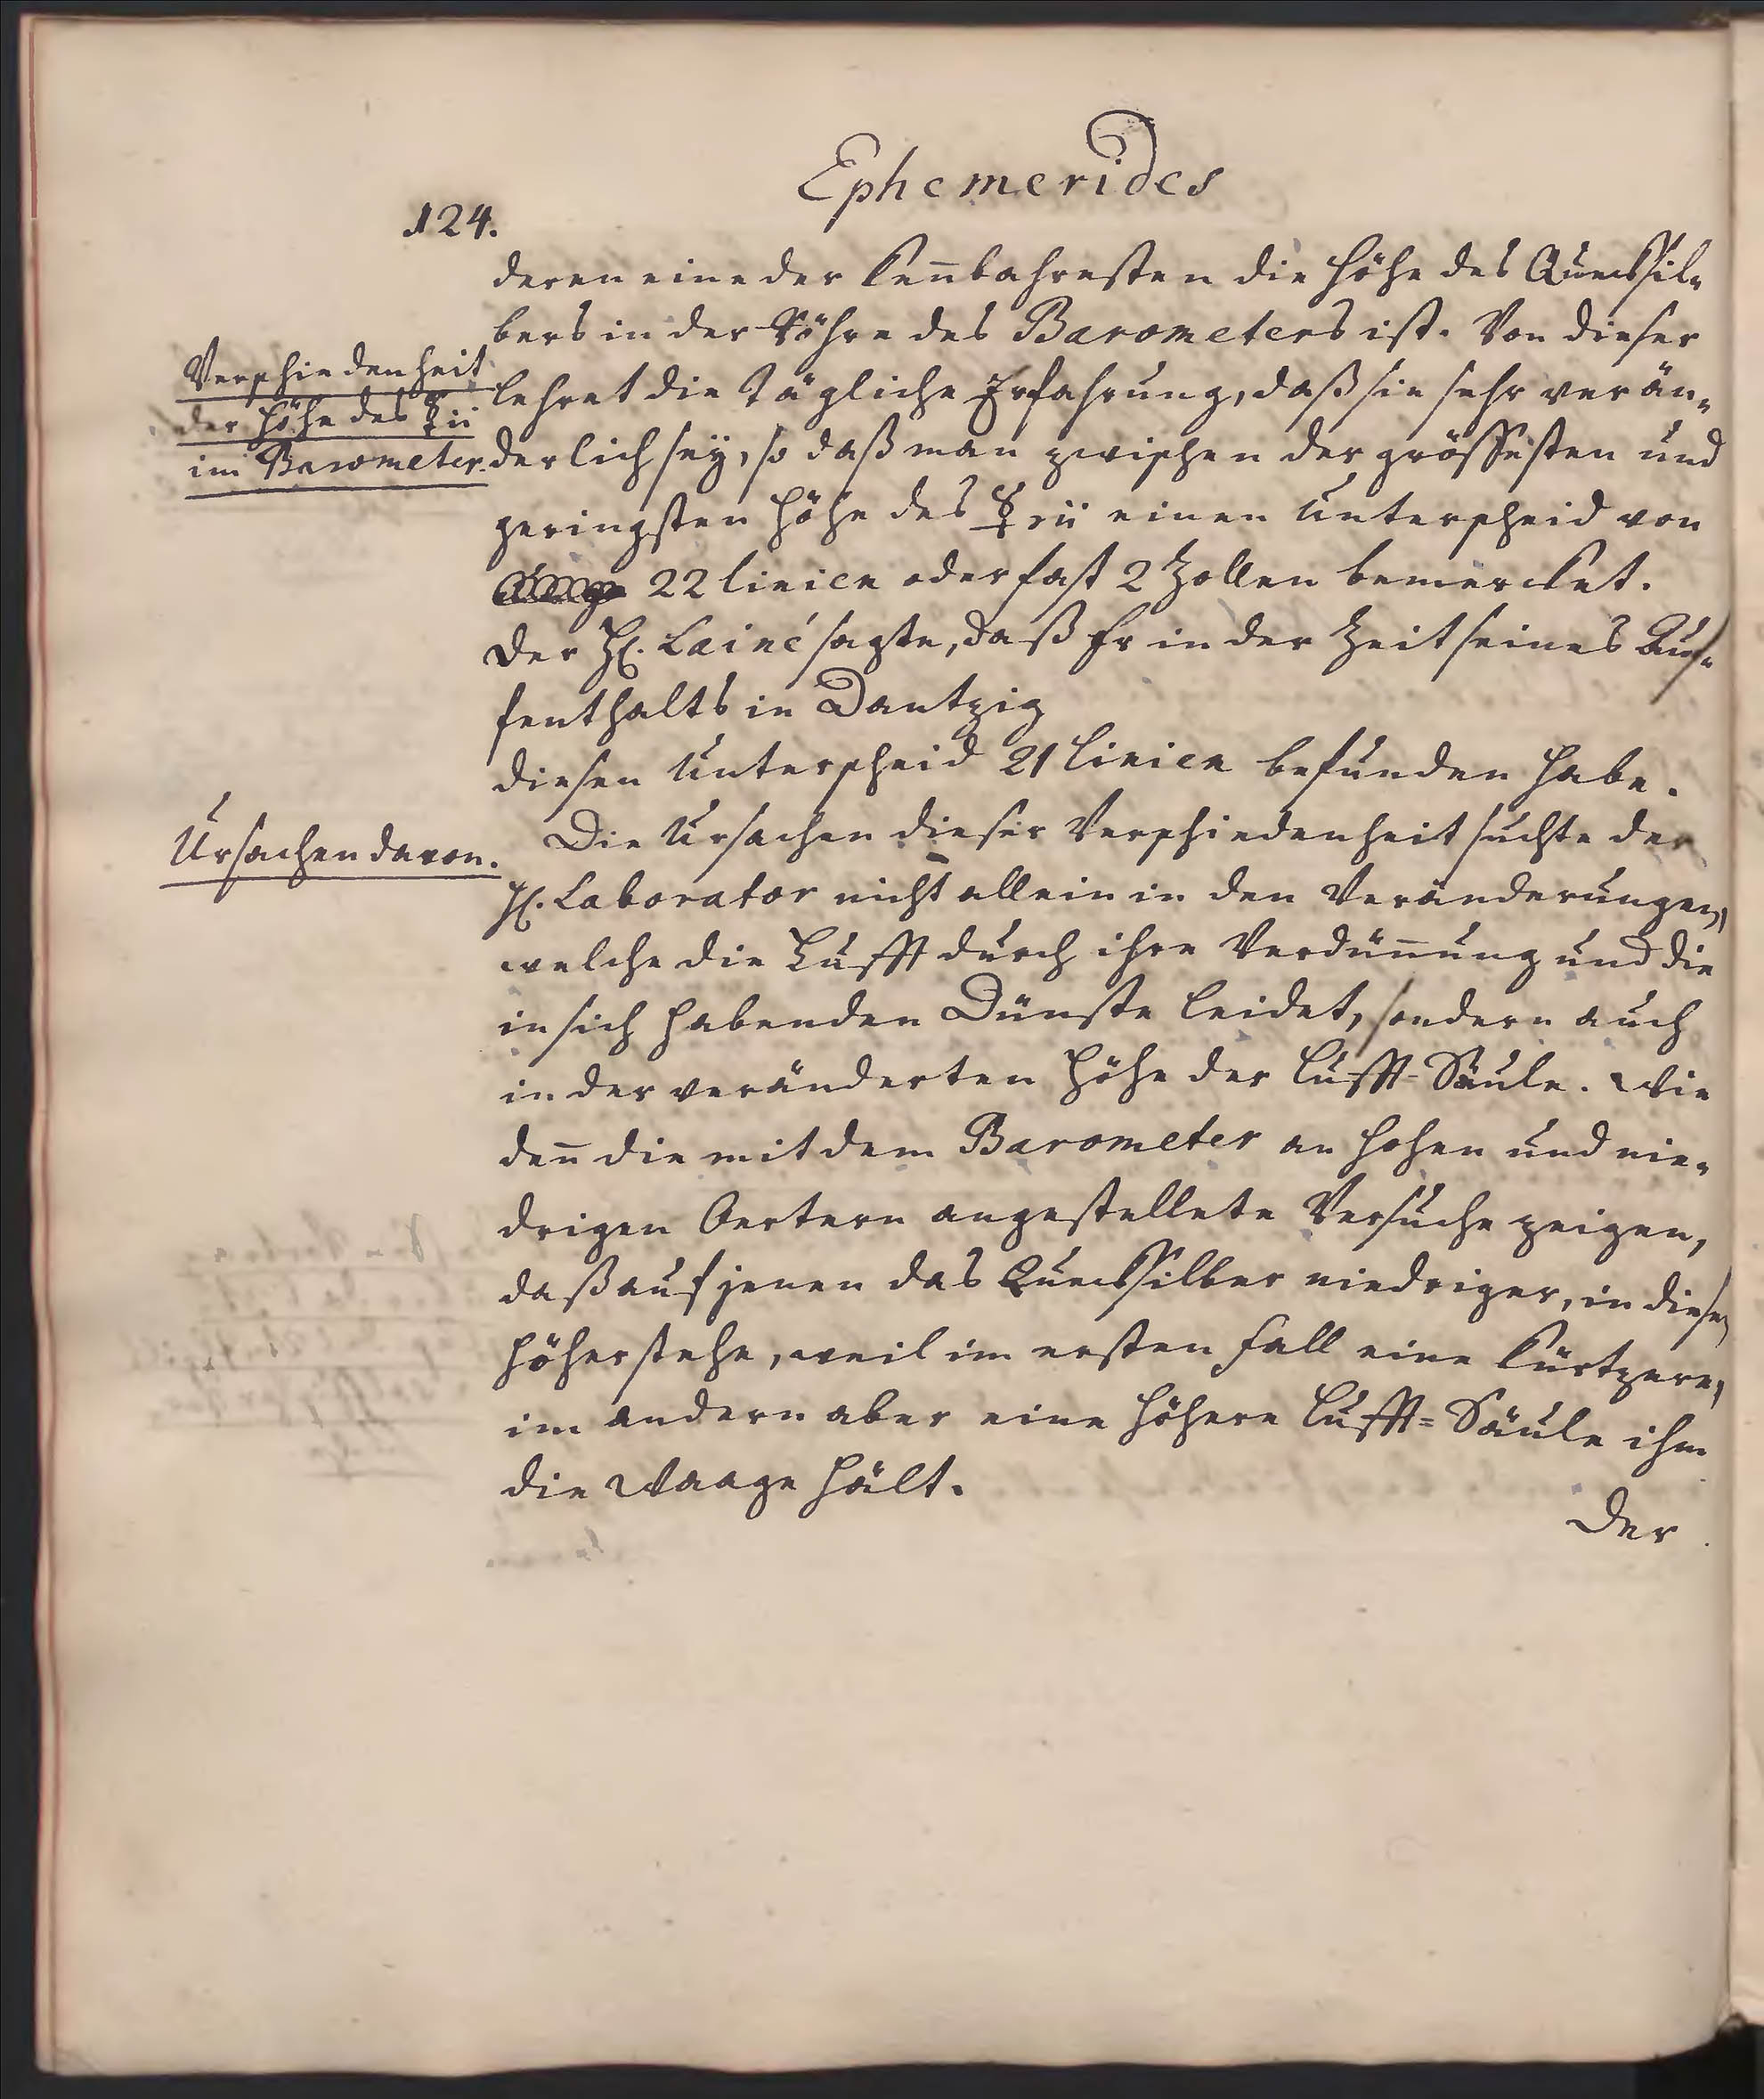 Ephemerides
124.
deren eine der kennbahresten die Höhe des Quecksil-
bers in der Röhre des Barometers ist. Von dieser
Verschiedenheit
der Höhe des ☿ii
im Barometer.
lehret die tägliche Erfahrung, daß sie sehr verän-
derlich sey, so daß man zwischen der grössesten und
geringsten Höhe des ☿rii einen Unterscheid von
22 linien oder fast 2 Zollen bemercket.
Der H. Lainé sagte, daß Er in der Zeit seines Auf-
fenthalts in Dantzig
diesen Unterscheid 21 linien befunden habe.
Ursachen davon.
Die Ursachen dieser Verschiedenheit suchte der
H. Laborator nicht allein in den Veränderungen,
welche die Lufft durch ihre Verdün̄ung und die
in sich habenden Dünste leidet, sondern auch
in der veränderten Höhe der Lufft-Säule. Wie
den̄ die mit dem Barometer an hohen und nie-
drigen Oertern angestellete Versuche zeigen,
daß auf jenen das Quecksilber niedriger, in diesen
höher stehe, weil im ersten Fall eine kürtzere,
im andern aber eine höhere Lufft=Säule ihm
die Waage hält.
Der